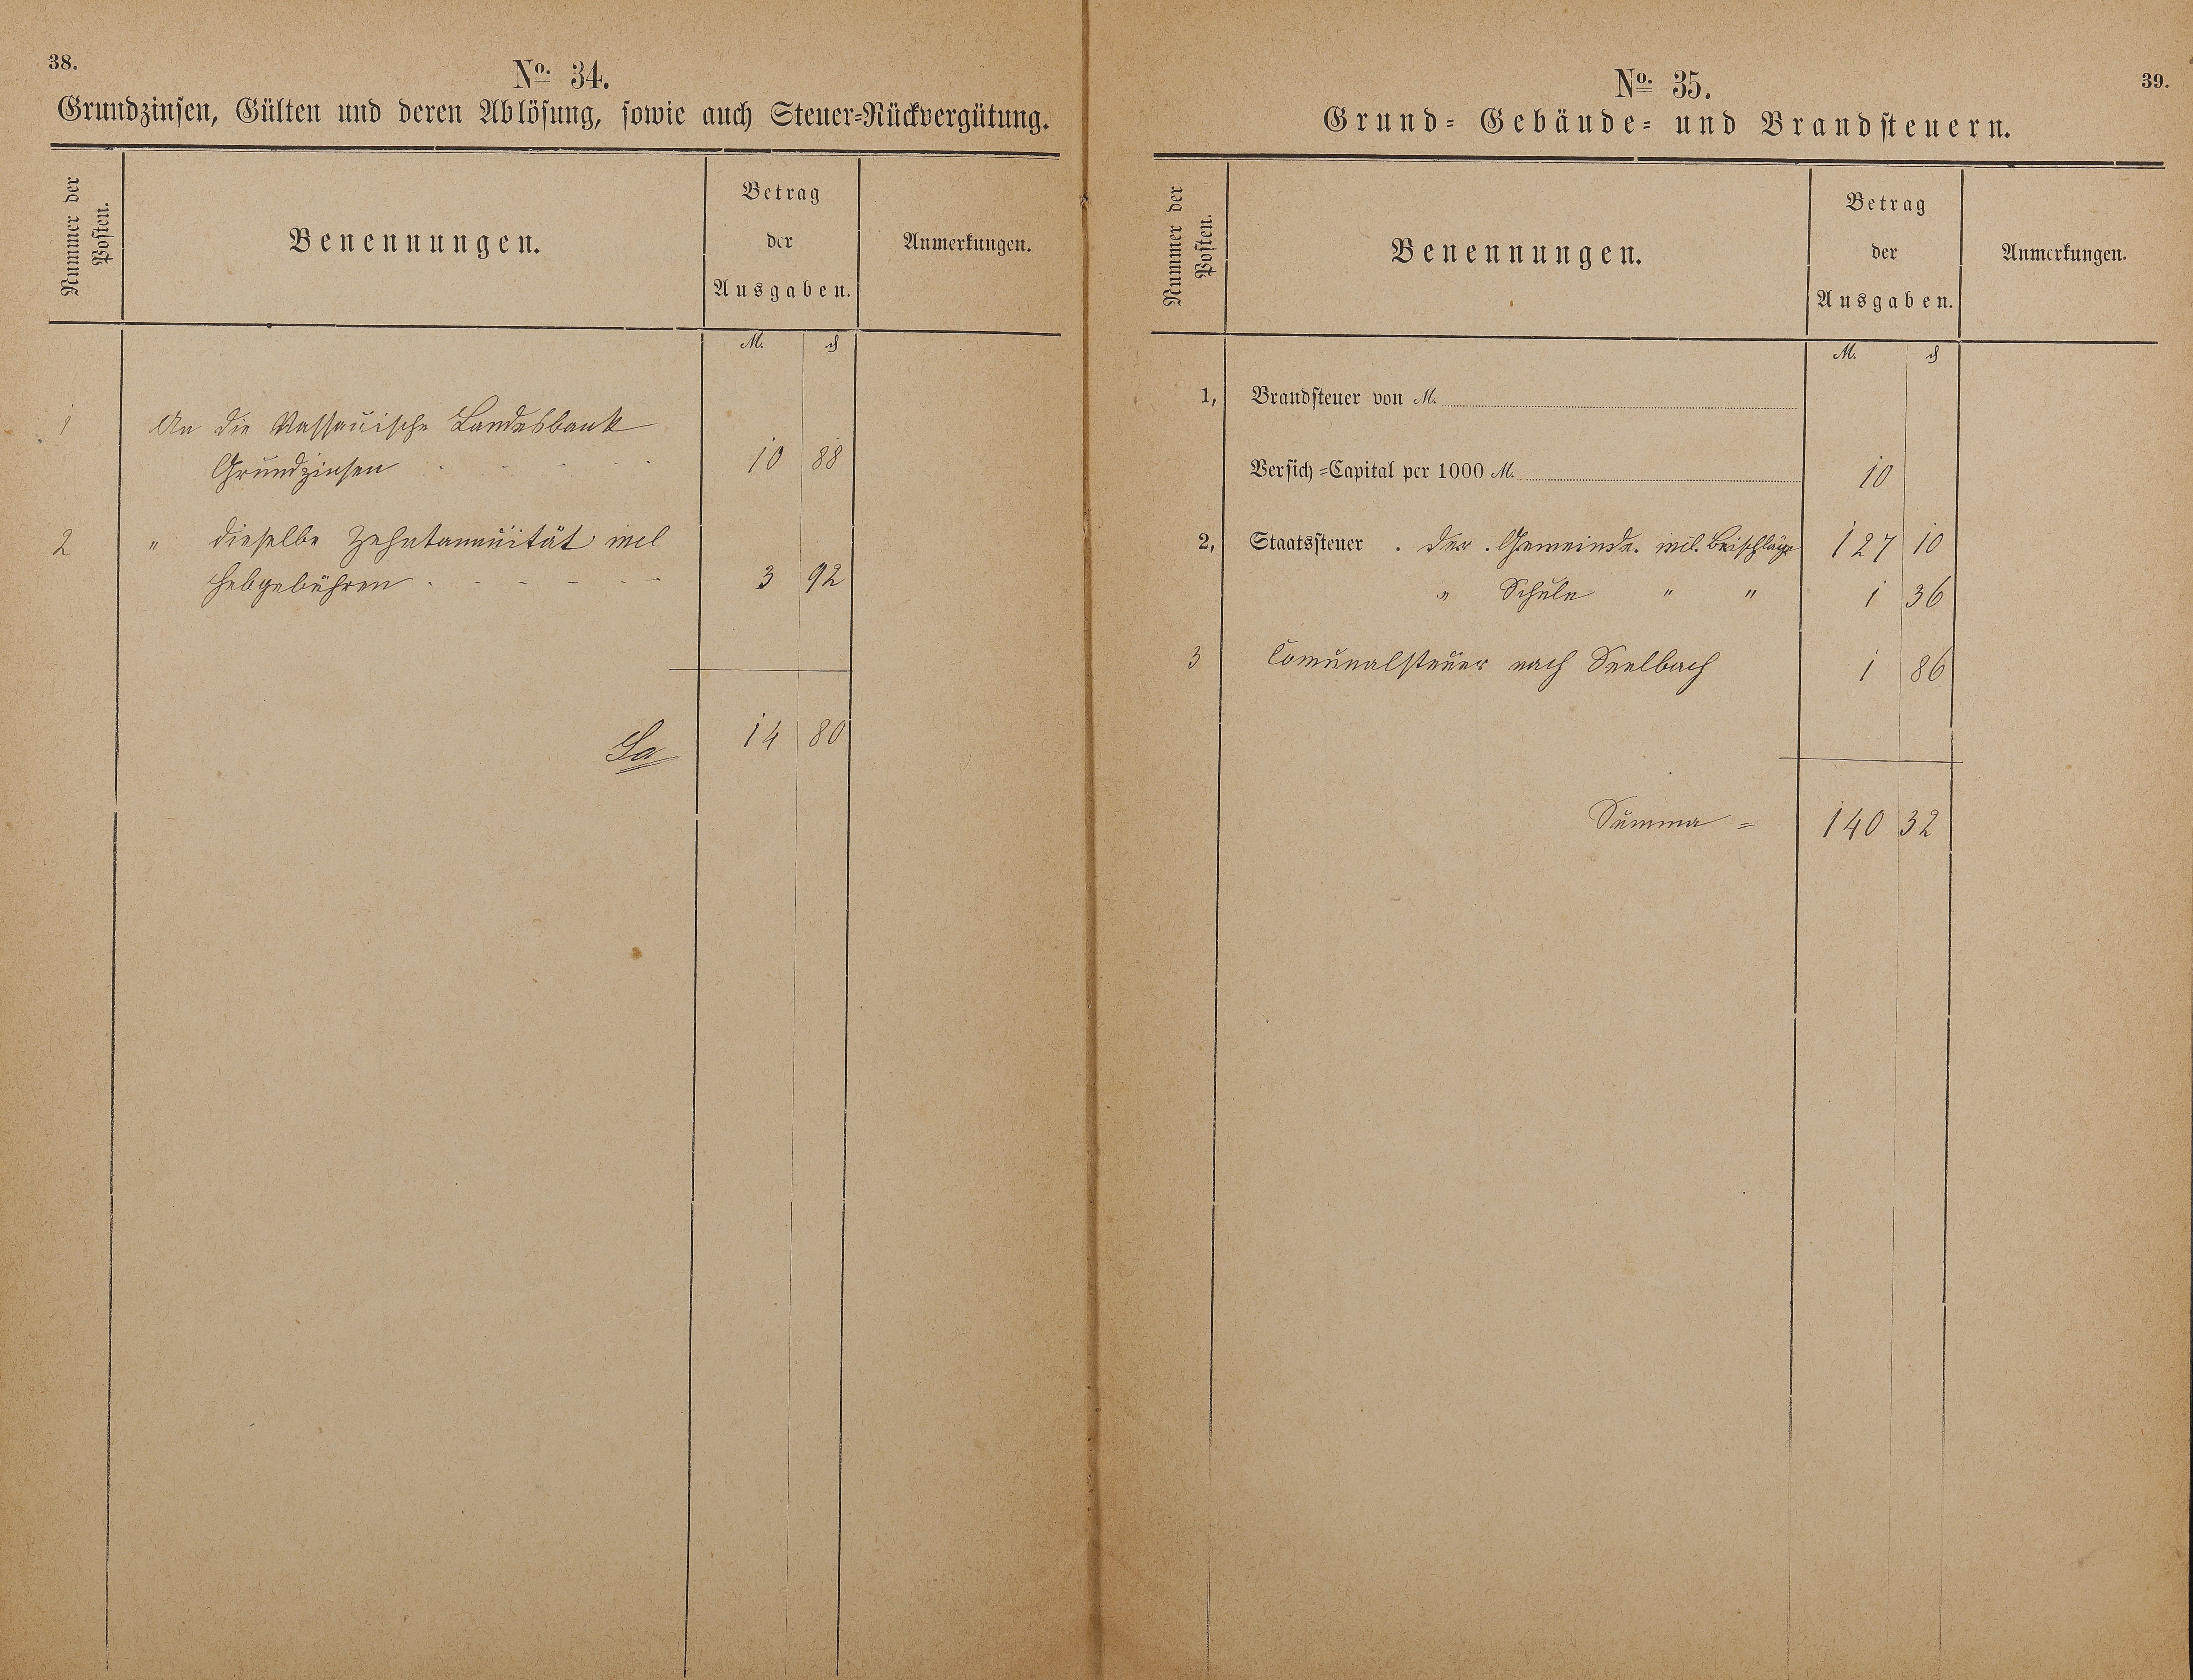 38.
No. 34.
Grundzinsen, Gülten und deren Ablösung, sowie auch Steuer-Rückvergütung.
Nummer der Posten.
Benennungen.
Betrag der Ausgaben.
Anmerkungen.
M. ₰
1 An die Nassauische Landesbank
Grundzinsen 10 88
2 " dieselbe Zehntannuität incl
Hebgebühren 3 92
Sa 14 80
39.
No. 35.
Grund- Gebäude- und Brandsteuern.
Nummer der Posten.
Benennungen.
Betrag der Ausgaben.
Anmerkungen.
M. ₰
1, Brandsteuer von M.
Versich-Capital per 1000 M. 10
2, Staatssteuer der Gemeinde incl. Beischläge 127 10
" Schule " " 1 36
3 Comunalsteuer nach Seelbach 1 86
Summa = 140 32